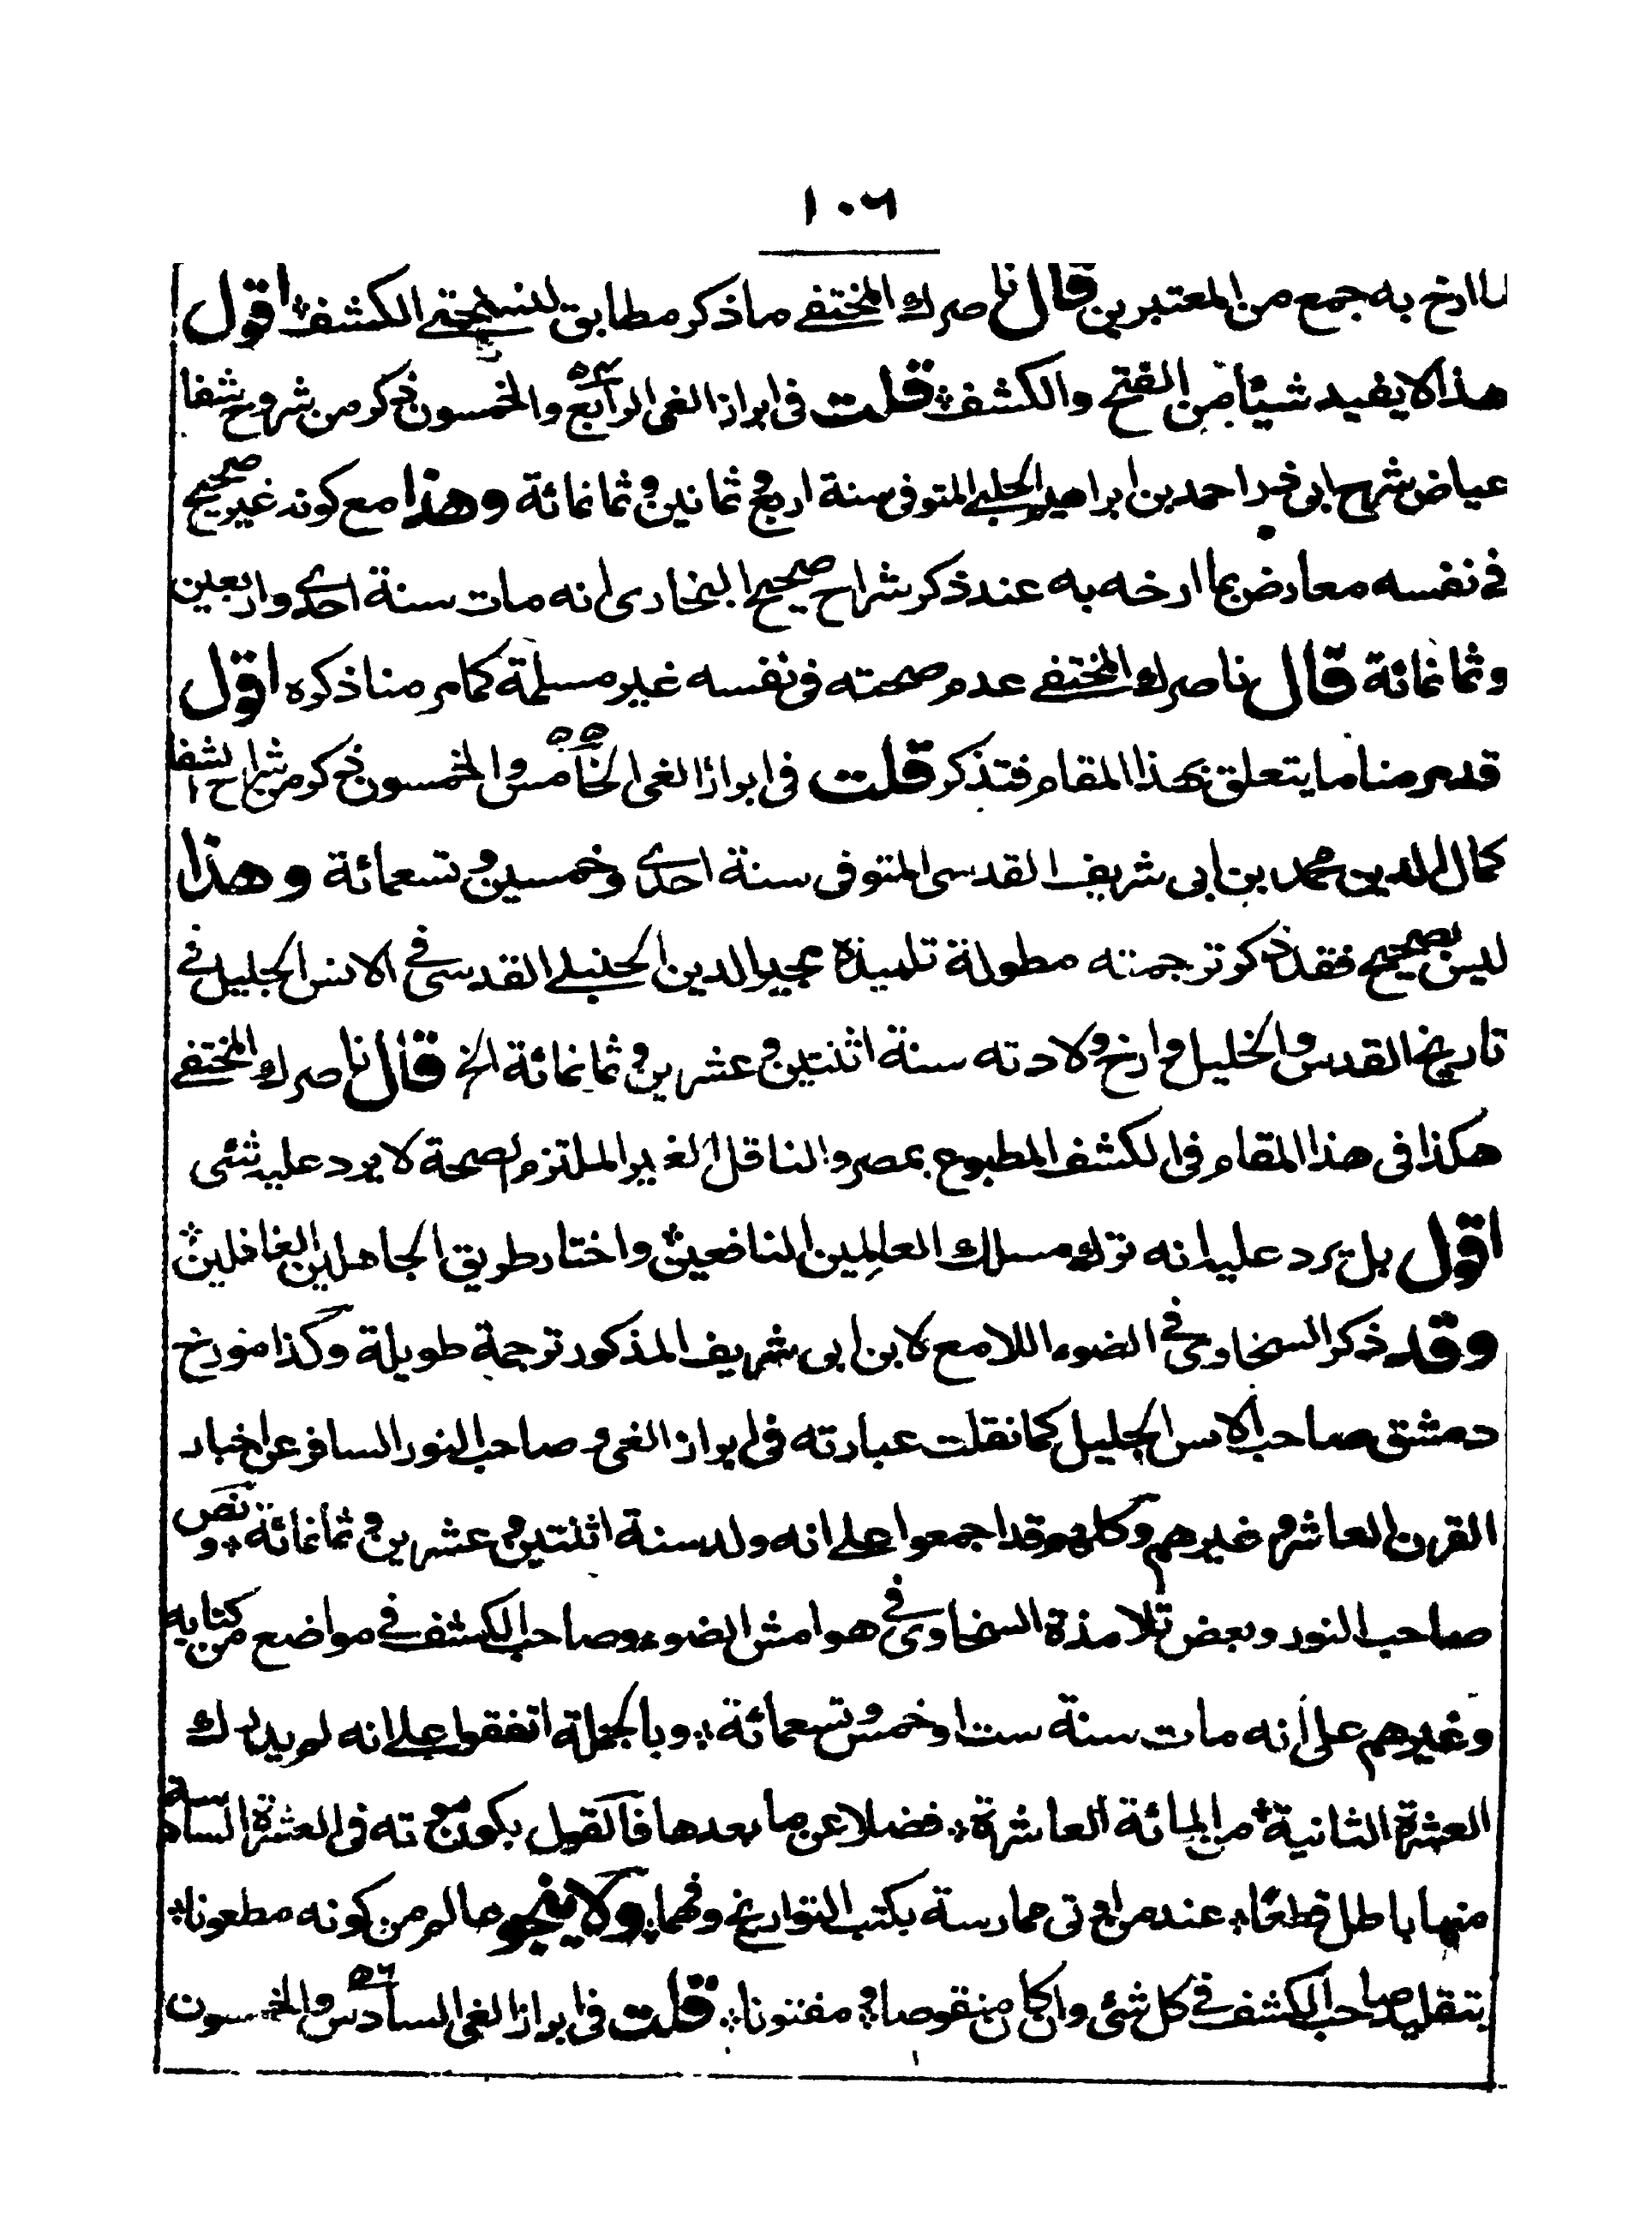 ١٠٦
لما ارخ به جمع من المعتبرين قال ناصرك المختفے ما ذكر مطابق لنسختے الكشف اقول
هذا لا يفيد شيئا من الفتح والكشف قلت فى ابراز الغى الرابع ٥٤ والخمسون ذكر من شروح شفا
عياض شرح ابى ذر احمد بن ابراهيم الحلبے المتوفى سنة اربع وثمانين وثمانمائة وهذا مع كونه غير صحيح
فے نفسه معارض بما ارخه به عند ذكر شراح صحيح البخارى انه مات سنة احدى واربعين
وثمانمائة قال ناصرك المختفے عدم صحته فى نفسه غير مسلمة كما مر منا ذكره اقول
قد مر منا ما يتعلق بهذا المقام فتذكر قلت فى ابراز الغى الخامس ٥٥ والخمسون ذكر من شراح الشفا
كمال الدين محمد بن ابى شريف القدسى المتوفى سنة احدى وخمسين وتسعمائة وهذا
ليس بصحيح فقد ذكر ترجمته مطولة تلميذه مجير الدين الحنبلے القدسى فے الانس الجليل فے
تاريخ القدس والخليل وارخ ولادته سنة اثنتين وعشرين وثمانمائة الخ قال ناصرك المختفے
هكذا فى هذا المقام فى الكشف المطبوع بمصر والناقل الغير الملتزم لصحة لا يرد عليه شئى
اقول بل يرد عليه انه ترك مسلك العالِمين النافعين واختار طريق الجاهلين الغافلين
وقد ذكر السخاوى فے الضوء اللامع لابن ابى شريف المذكور ترجمة طويلة وكذا مورخ
دمشق صاحب الانس الجليل كما نقلت عبارته فى ابراز الغى وصاحب النور السافر عن اخبار
القرن العاشر وغيرهم وكلهم قد اجمعوا على انه ولد سنة اثنتين وعشرين وثمانمائة ونص
صاحب النور وبعض تلامذة السخاوى فے هوامش الضوء وصاحب الكشف فے مواضع من كتابه
وغيرهم على أنه مات سنة ست او خمس وتسعمائة وبالجملة اتفقوا على انه لم يدرك
العشرة الثانية من المائة العاشرة فضلا عن ما بعدها فالقول بكون موته فى العشرة السادسة
منها باطل قطعًا عند من له ادنى ممارسة بكتب التواريخ وفهما ولا ينجو عالم من كونه مطعونا
بتقليد صاحب الكشف فے كل شئى وان كان منقوصا ومفتونا قلت فى ابراز الغى السادس ٥٦ والخمسون